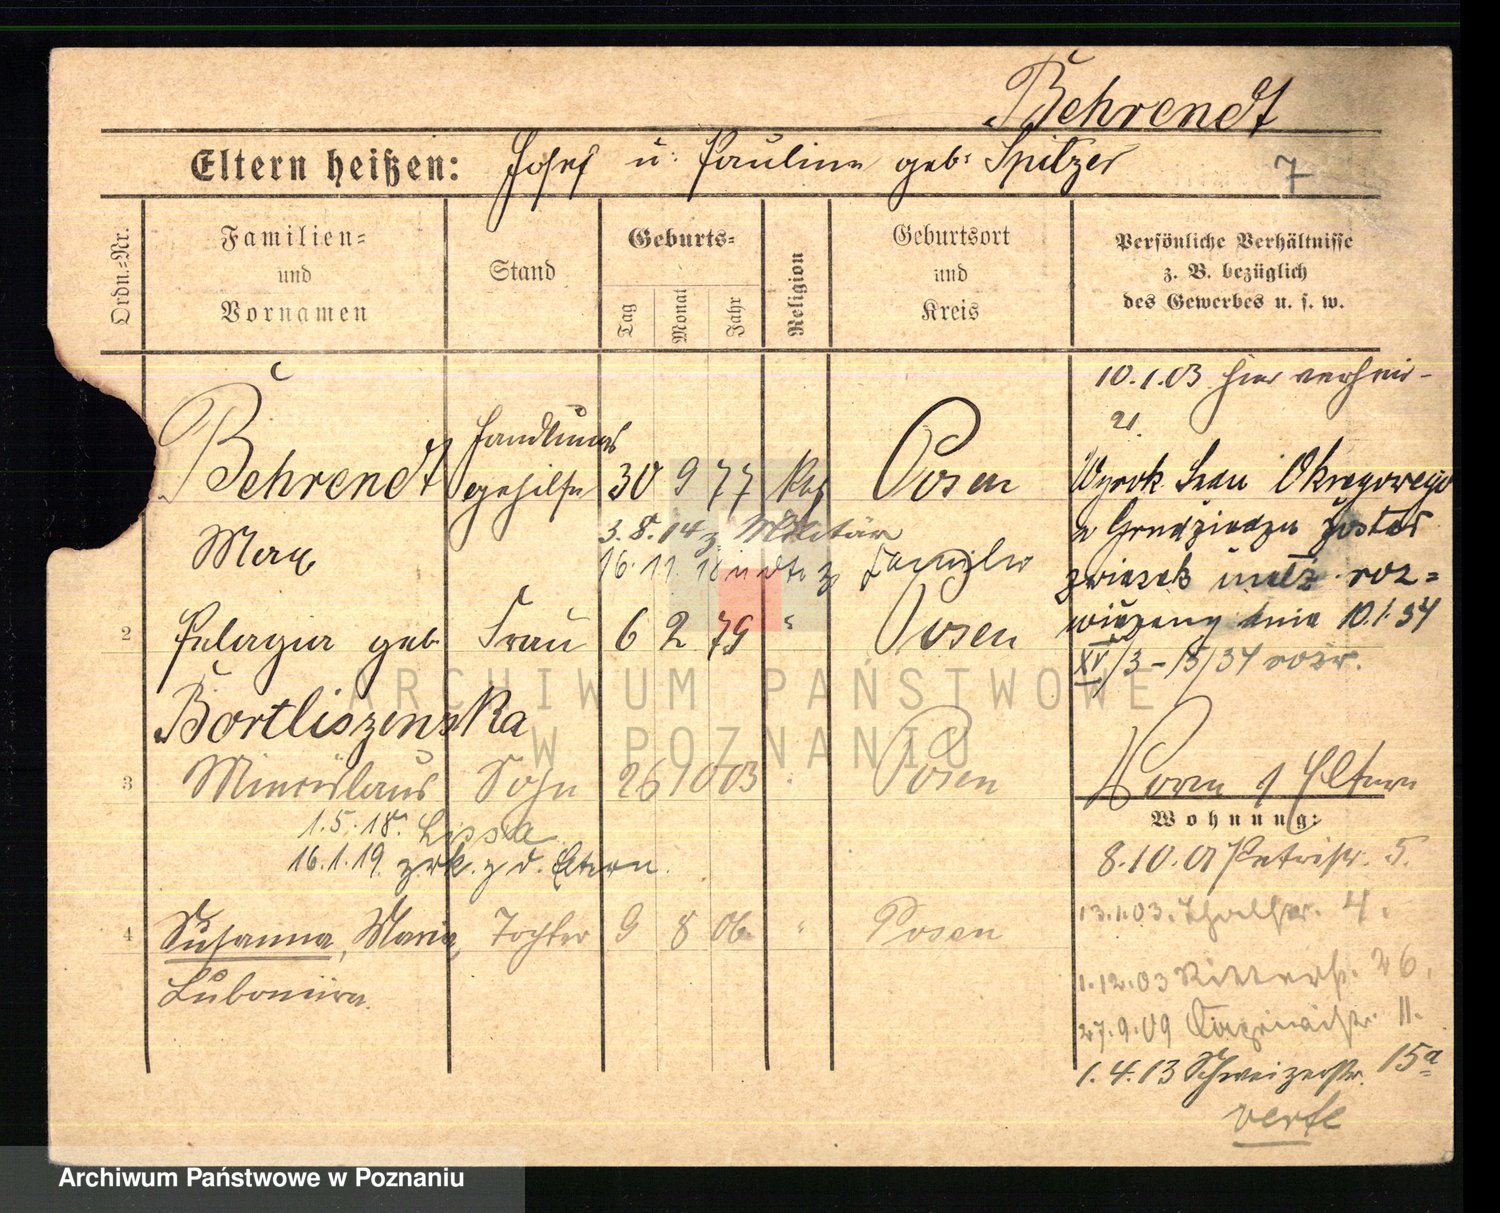 Behrendt
Eltern heißen: Josef u. Pauline geb. Spitzer
7
Ordn.-Nr.
Familien-
und
Vornamen
Stand
Geburts-
Tag
Monat
Jahr
Religion
Geburtsort
und
Kreis
Persönliche Verhältnisse
z. B. bezüglich
des Gewerbes u. s. w.
10.1.03 hier verheir-
Behrendt Handlungs
gehilfe 30 9 77 kath Posen
Max
3.8.14 z. Militär
16.11.18 z Familie
Wyrok Sądu Okręgowego
w Grudziądzu został
związek małż. roz=
wiązany dnia 10.1.34
XV/3-13/34 rozw.
2 Pelagia geb. Frau 6 2 79 " Posen
Bortliszewska
3 Miecislaus Sohn 26 10 03 Posen
1.5.18. Lissa
16.1.19. zrk. z d. Eltern.
Eltern
Wohnung:
8.10.01 Petristr. 5.
13.1.03. Thalstr. 4.
1.12.03 Ritterstr. 26.
27.9.09 11.
1.4.13 Schweizerstr. 15a
verte
4 Susanna, Maria, Tochter 9 8 06 " Posen
Lubomira
ARCHIWUM PAŃSTWOWE
W POZNANIU
Archiwum Państwowe w Poznaniu